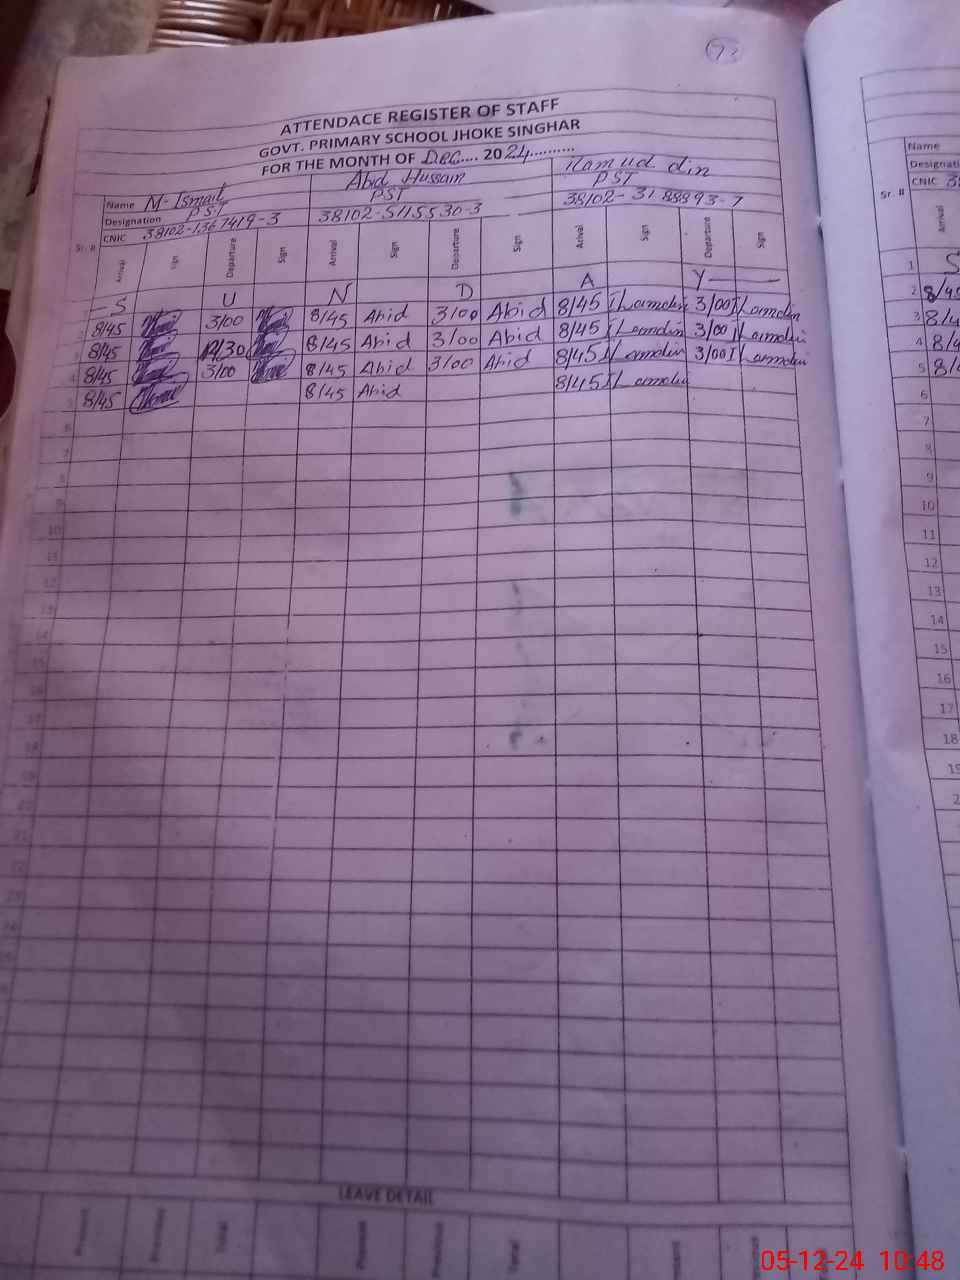 73
ATTENDACE REGISTER OF STAFF
GOVT. PRIMARY SCHOOL JHOKE SINGHAR
FOR THE MONTH OF Dec.... 2024..........
Name M-Ismail Abid Hussain
Designation PST PST PST
CNIC 38102-1367419-3 38102-5115530-3 38102-3188893-7
Sr. # Arrival Sign Departure Sign Arrival Sign Departure Sign Arrival Sign Departure Sign
S U N D A Y
8/45 3/00 8/45 Abid 3/00 Abid 8/45 3/00
8/45 12/30 8/45 Abid 3/00 Abid 8/45 3/00
8/45 3/00 8/45 Abid 3/00 Abid 8/45 3/00
8/45 8/45 Abid 8/45
6
7
8
9
10
11
12
13
14
15
16
17
18
19
20
21
22
23
24
25
LEAVE DETAIL
Present Previous Total Present Previous Total
Name
Designati
CNIC 38
Sr. #
Arrival
1 S
2 8/45
3 8/4
4 8/4
5 8/4
6
7
8
9
10
11
12
13
14
15
16
17
18
19
05-12-24 10:48